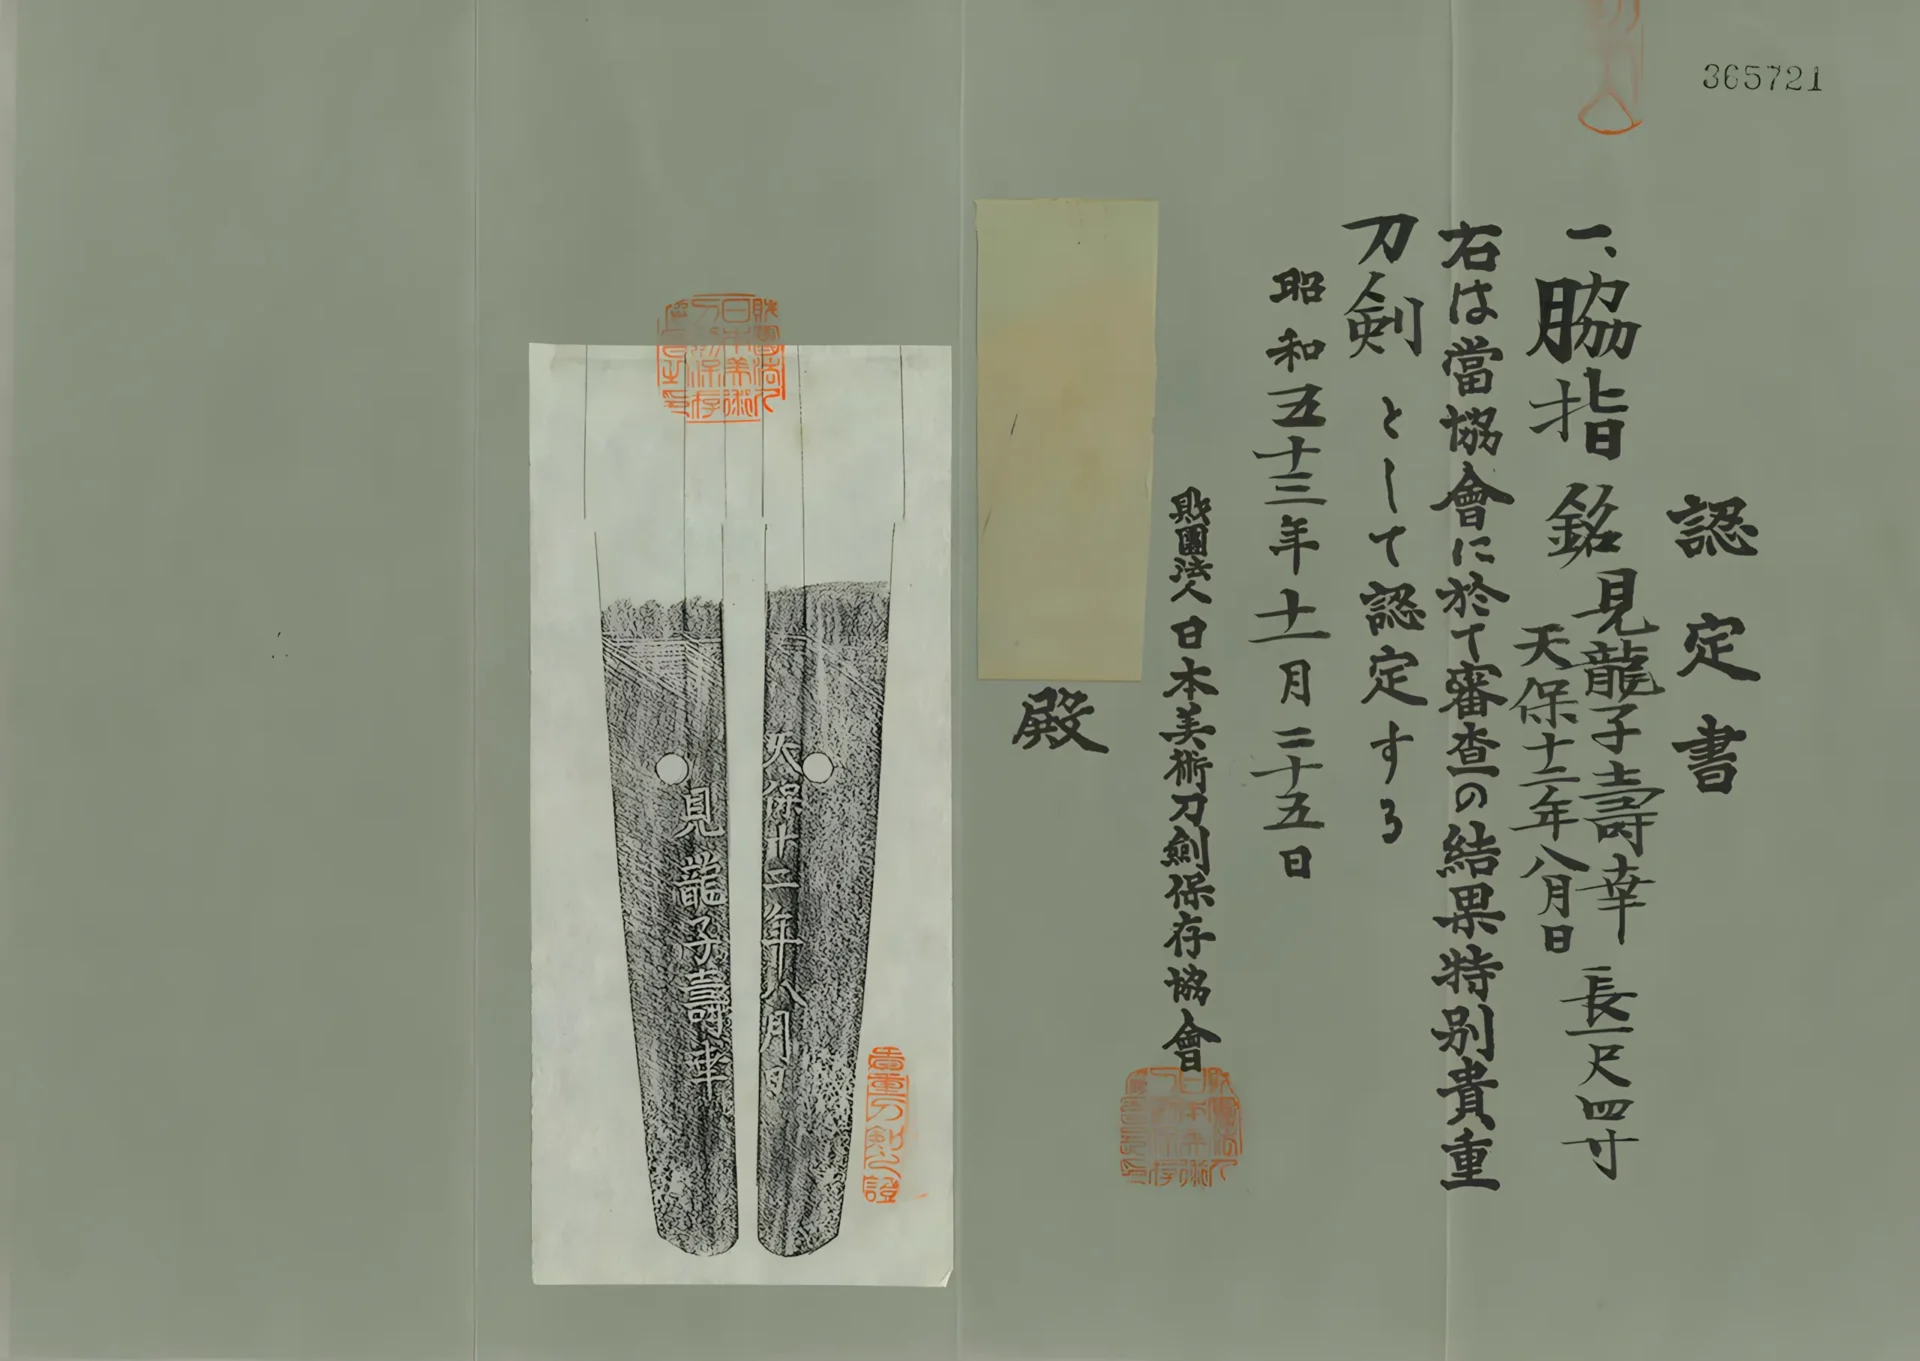 365721
認定書
一、脇指 銘 見龍子壽幸 長一尺四寸
天保十二年八月日
右は當協會に於て審査の結果特別貴重
刀剣として認定する
昭和五十三年十一月二十五日
財團法人日本美術刀劍保存協會
殿
天保十二年八月日
見龍子壽幸
財團法人日本美術刀劍保存
貴重刀剣之證